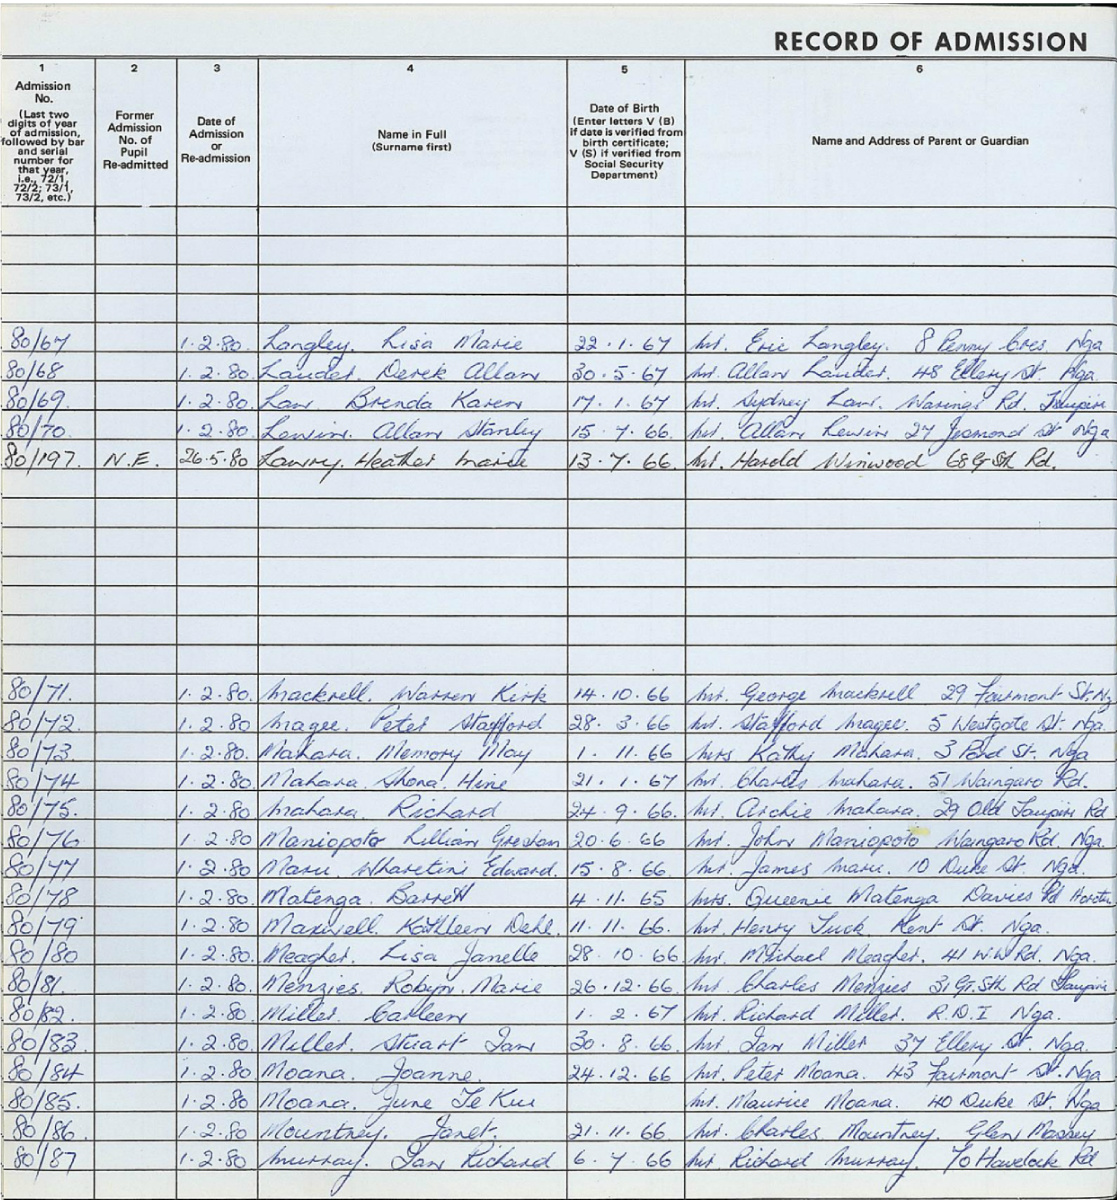 RECORD OF ADMISSION
1 2 3 4 5 6
Admission No. (Last two digits of year of admission, followed by bar and serial number for that year, i.e., 72/1, 72/2; 73/1, 73/2, etc.)
Former Admission No. of Pupil Re-admitted
Date of Admission or Re-admission
Name in Full (Surname first)
Date of Birth (Enter letters V (B) if date is verified from birth certificate; V (S) if verified from Social Security Department)
Name and Address of Parent or Guardian
80/67 1.2.80. Langley. Lisa Marie 22.1.67 Mr. Eric Langley. 8 Penny Cres. Nga
80/68 1.2.80 Lauder. Derek Allan 30.5.67 Mr. Allan Lauder. 48 Ellery St. Nga.
80/69. 1.2.80 Law. Brenda Karen 17.1.67 Mr. Sydney Law. Warings Rd. Taupiri
80/70 1.2.80. Lewin. Allan Stanley 15.7.66. Mr. Allan Lewin 27 Jesmond St Nga
80/197. N.E. 26.5.80 Lawry. Heather Marie 13.7.66. Mr. Harold Winwood 68 Gt Sth Rd.
80/71. 1.2.80. Mackrell. Warren Kirk 14.10.66 Mr. George Mackrell 29 Fairmont St. Ng
80/72. 1.2.80. Magee. Peter Stafford 28.3.66 Mr. Stafford Magee. 5 Westgate St. Nga.
80/73. 1.2.80. Mahara. Memory May 1.11.66 Mrs Kathy Mahara. 3 Pond St. Nga
80/74 1.2.80. Mahara Shona Hine 21.1.67 Mr. Charles Mahara. 51 Waingaro Rd.
80/75. 1.2.80. Mahara. Richard 24.9.66. Mr. Archie Mahara. 29 Old Taupiri Rd
80/76 1.2.80 Maniopoto Lillian 20.6.66 Mr. John Maniopoto Waingaro Rd. Nga.
80/77 1.2.80. Maru. Wharetini Edward. 15.8.66. Mr. James Maru. 10 Duke St. Nga.
80/78 1.2.80. Matenga. Barrett 4.11.65 Mrs. Queenie Matenga Davies Rd
80/79 1.2.80. Maxwell. Kathleen 11.11.66. Mr. Henry Tuck. Kent St. Nga.
80/80 1.2.80. Meagher. Lisa Janelle 28.10.66 Mr. Michael Meagher. 41 W.W Rd. Nga.
80/81. 1.2.80. Menzies. Robyn. Marie 26.12.66. Mr. Charles Menzies 31 Gt. Sth Rd Taupiri
80/82. 1.2.80. Miller. Carleen 1.2.67 Mr. Richard Miller. R.D.I Nga.
80/83. 1.2.80. Miller. Stuart Ian 30.8.66. Mr. Ian Miller 37 Ellery St. Nga.
80/84 1.2.80. Moana. Joanne. 24.12.66 Mr. Peter Moana. 43 Fairmont St. Nga
80/85. 1.2.80 Moana. June Te Kui Mr. Maurice Moana. 40 Duke St. Nga
80/86. 1.2.80 Mountney. Janet. 21.11.66. Mr. Charles Mountney. Glen Massey
80/87 1.2.80. Murray. Ian Richard 6.7.66 Mr. Richard Murray. 70 Havelock Rd